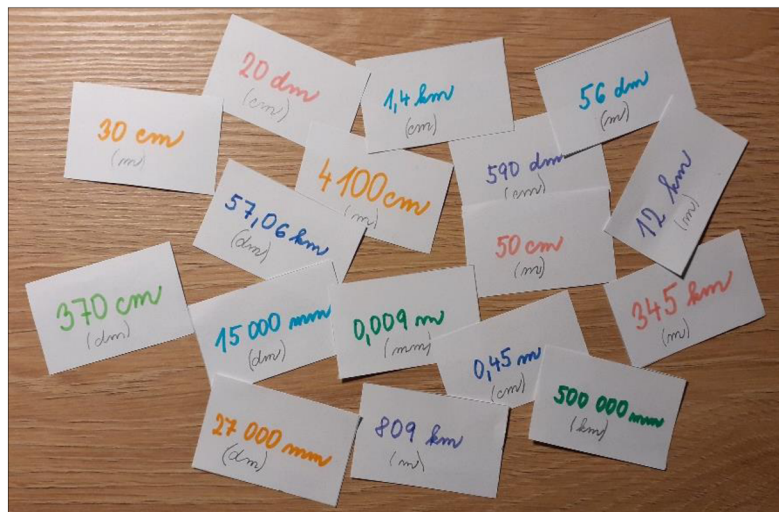 20 dm
(cm)
1,4 km
(cm)
56 dm
(m)
30 cm
(m)
4100 cm
(m)
590 dm
(cm)
12 km
(m)
57,06 km
(dm)
50 cm
(m)
370 cm
(dm)
15 000 mm
(dm)
0,009 m
(mm)
345 km
(m)
0,45 m
(cm)
27 000 mm
(dm)
809 km
(m)
500 000 mm
(km)